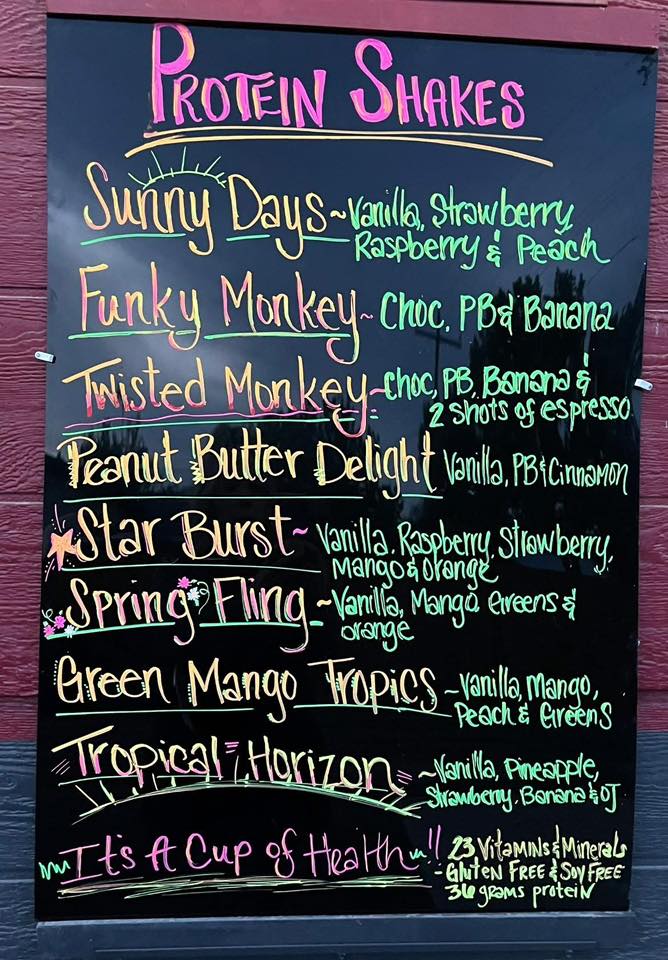 PROTEIN SHAKES
Sunny Days ~ Vanilla, Strawberry,
Raspberry & Peach
Funky Monkey ~ Choc, PB & Banana
Twisted Monkey ~ Choc, PB, Banana &
2 Shots of espresso
Peanut Butter Delight Vanilla, PB & Cinnamon
Star Burst ~ Vanilla, Raspberry, Strawberry,
Mango & orange
Spring Fling ~ Vanilla, Mango Greens &
orange
Green Mango Tropics ~ Vanilla, Mango,
Peach & Greens
Tropical Horizon ~ Vanilla, Pineapple,
Strawberry, Banana & OJ
It's A Cup of Health !! 23 Vitamins & Minerals
- Gluten Free & Soy Free
36 grams protein